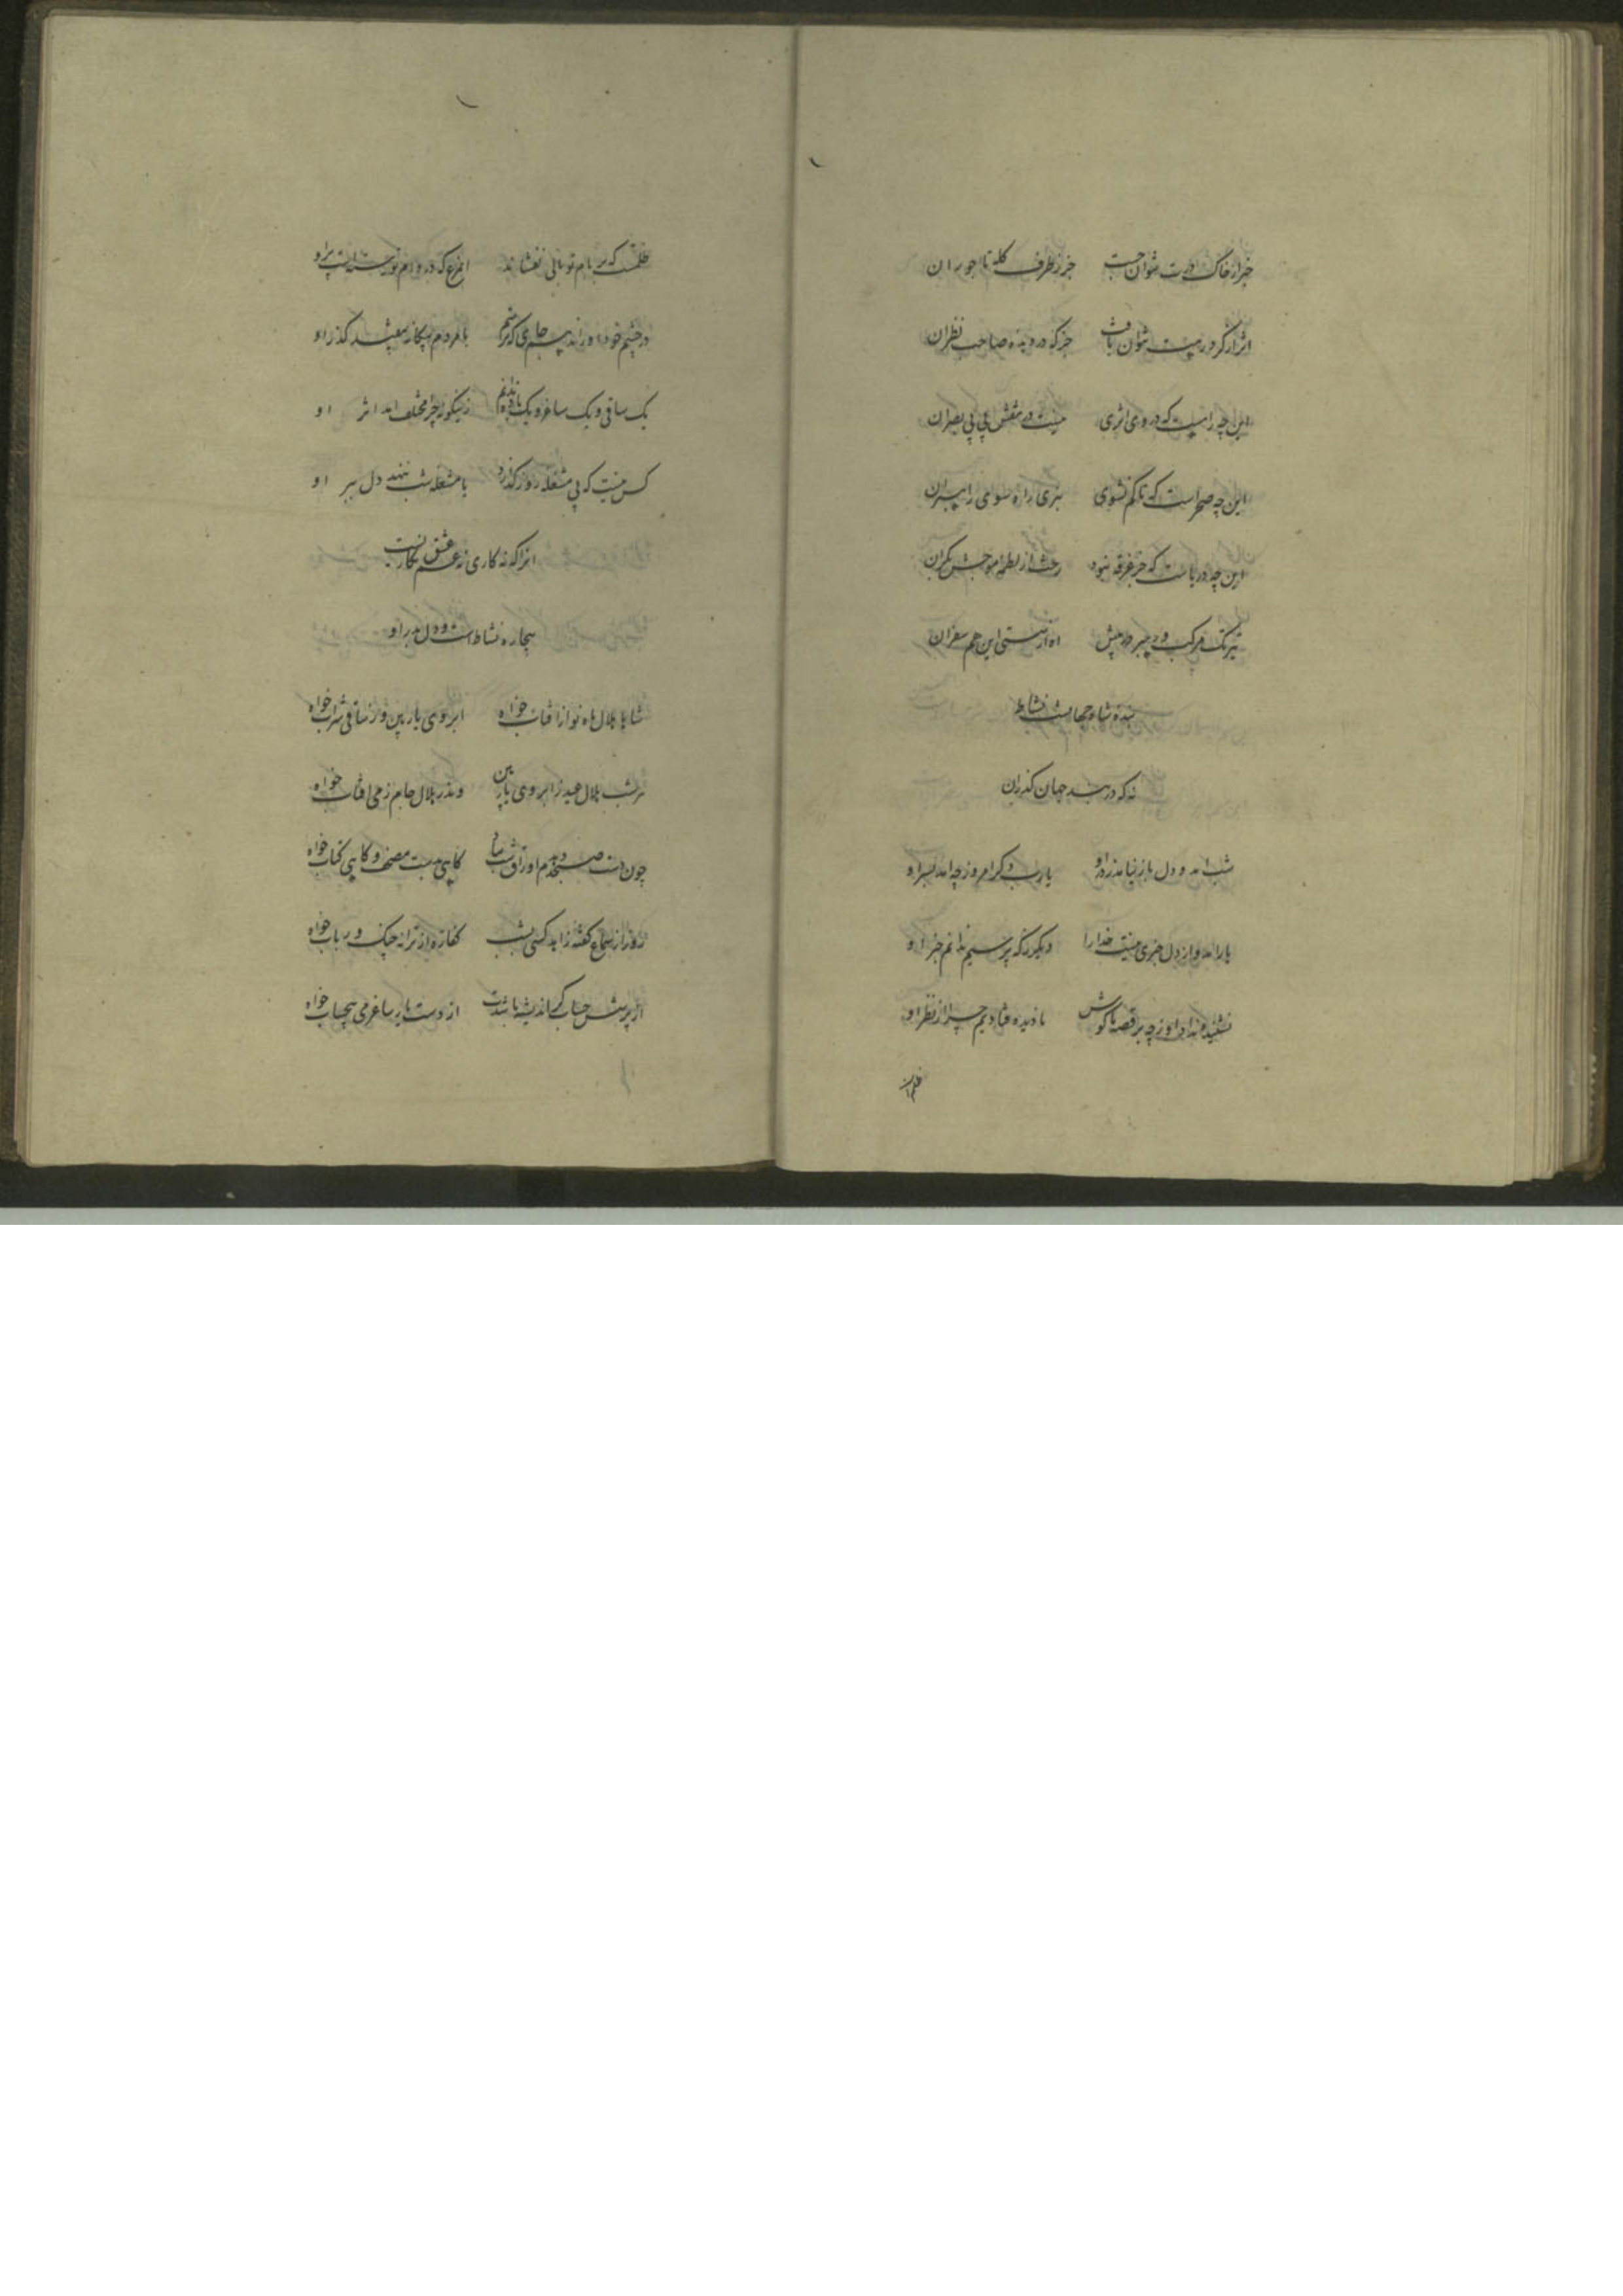 خبر از خاک درت نتوان جست    جز ز طرف کله تاجوران
اثر از کرد رهت نتوان یافت    جز که در دیده صاحب نظران
این چه راهیست که در وی اثری    نیست در نقش پی پی بصران
این چه صحراست که تا کم نشوی    نبری راه سوی راهبران
این چه دریاست که جز غرقه نبود    رخت از لطمه موجش بکران
تیز تک مرکب و ره پیش    اه از سستی این هم سفران
بنده شاه جهانست نشاط
نه که در بند جهان کذران
شب امد و دل باز نیامد ز در او    یارب دکر امروز چه امد بسر او
یار امد و از دل خبری نیست خدا را    دیگر ز که پرسیم ندانم خبر او
نشنیده نداد او ز چه بر قصه ما کوش    نادیده فتادیم چرا از نظر او
ظلمست که بر بام تو بالی نفشاند    ان مرغ که در دام تو بر او
در چشم خود اورند پس جای که    با مردم بیکانه نیفتد کذر او
یک ساقی و یک ساغر و یک باده ندانم    زینکونه چرا مختلف امد اثر او
کس نیست که بی مشغله روز کذارد    با مشغله شب ننهد دل ببر او
انرا که نه کاری ز غم عشق نکاریست
بیچاره نشاط است و دل او
شاها هلال ماه نو از افتاب خواه    ابروی یار بین و ز ساقی شراب خواه
هر شب هلال عید ز ابروی یار بین    وندر هلال جام ز می افتاب خواه
چون دست صبحدم اوراق شب    کاهی بدست مصحف و کاهی کتاب خواه
روز از سماع کفته زاهد کسی بشب    کفاره از ترانه چنک و رباب خواه
از پرسش حساب کر اندیشه باشدت    از دست یار ساغر می بیحساب خواه